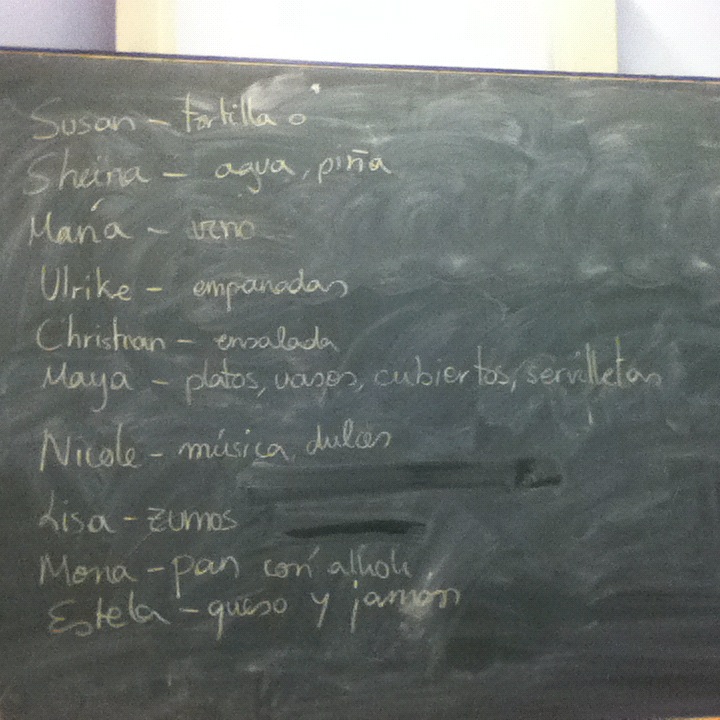 Susan - tortilla
Sheina - agua, piña
María - vino
Ulrike - empanadas
Christian - ensalada
Maya - platos, vasos, cubiertos, servilletas
Nicole - música, dulces
Lisa - zumos
Mona - pan con alholi
Estela - queso y jamon